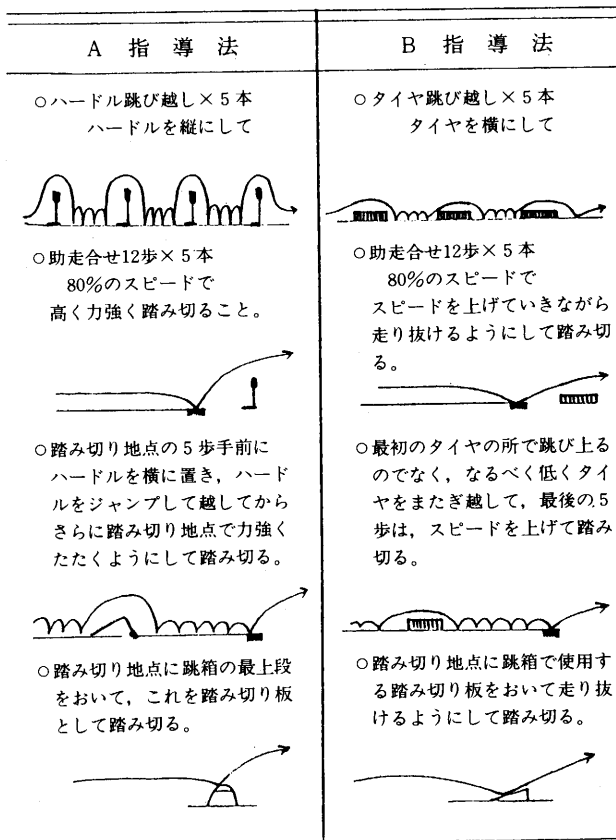 A 指 導 法
○ハードル跳び越し×5本
ハードルを縦にして
○助走合せ12歩×5本
80%のスピードで
高く力強く踏み切ること。
○踏み切り地点の5歩手前に
ハードルを横に置き，ハード
ルをジャンプして越してから
さらに踏み切り地点で力強く
たたくようにして踏み切る。
○踏み切り地点に跳箱の最上段
をおいて，これを踏み切り板
として踏み切る。
B 指 導 法
○タイヤ跳び越し×5本
タイヤを横にして
○助走合せ12歩×5本
80%のスピードで
スピードを上げていきながら
走り抜けるようにして踏み切
る。
○最初のタイヤの所で跳び上る
のでなく，なるべく低くタイ
ヤをまたぎ越して，最後の5
歩は，スピードを上げて踏み
切る。
○踏み切り地点に跳箱で使用す
る踏み切り板をおいて走り抜
けるようにして踏み切る。